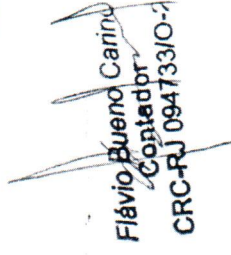 Flávio Bueno Carino
Contador
CRC-RJ 094733/O-